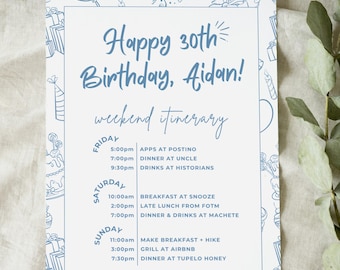 Happy 30th
Birthday, Aidan!
weekend itinerary
FRIDAY
5:00pm APPS AT POSTINO
7:00pm DINNER AT UNCLE
9:30pm DRINKS AT HISTORIANS
SATURDAY
10:00am BREAKFAST AT SNOOZE
2:00pm LATE LUNCH FROM FOTM
7:00pm DINNER & DRINKS AT MACHETE
SUNDAY
11:00am MAKE BREAKFAST + HIKE
3:00pm GRILL AT AIRBNB
7:30pm DINNER AT TUPELO HONEY